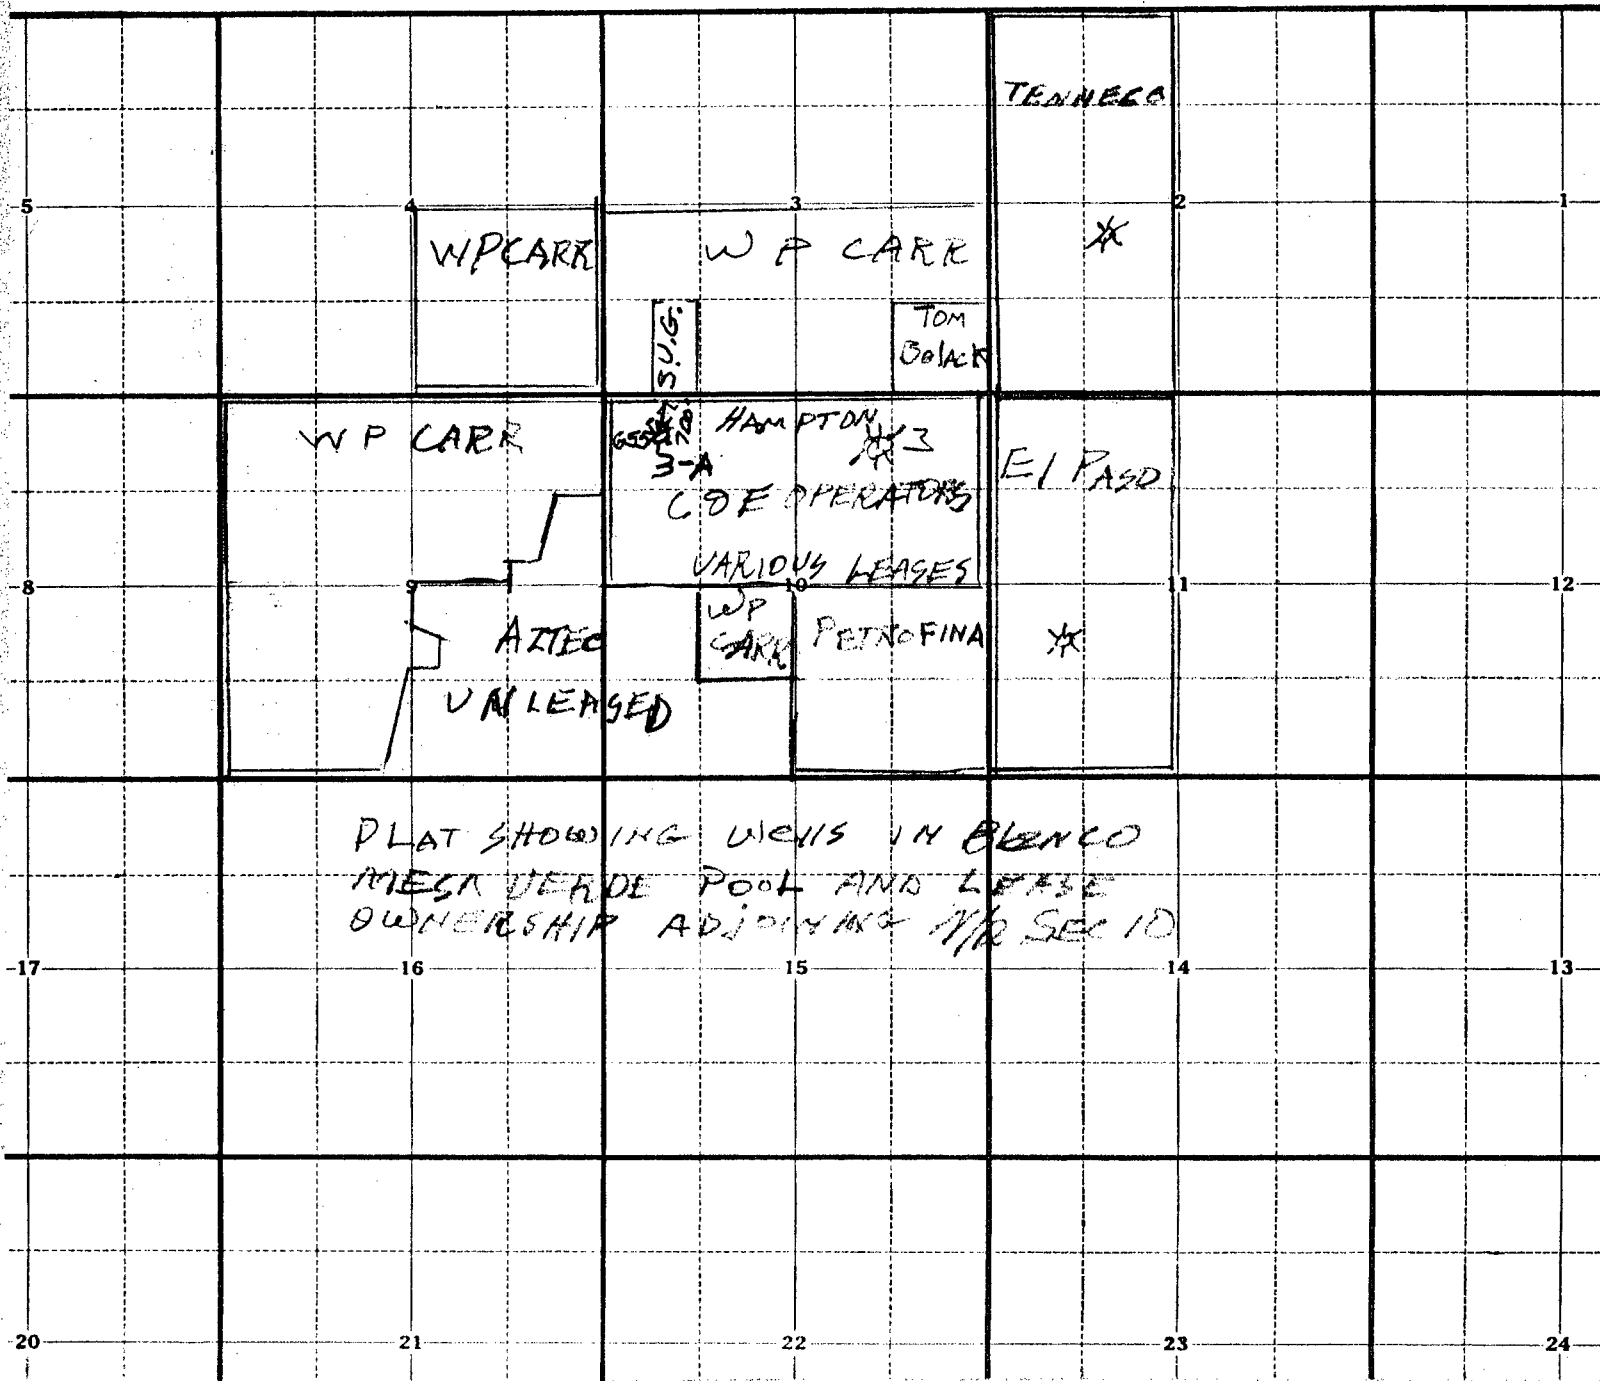 TENNECO
5
4
3
2
1
WPCARR
W P CARR
S.U.G.
TOM
Bolack
W P CARR
HAMPTON
3
3-A
El PASO
C & E OPERATORS
VARIOUS LEASES
8
9
10
11
12
WP
CARR
AZTEC
PETROFINA
UNLEASED
PLAT SHOWING WEllS IN BLANCO
MESA VERDE POOL AND LEASE
OWNERSHIP ADJOINING N/2 SEC 10
17
16
15
14
13
20
21
22
23
24